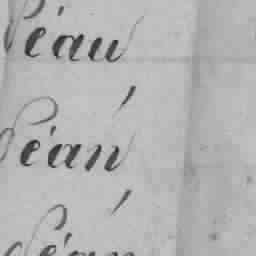 Péau
Péan
Péan